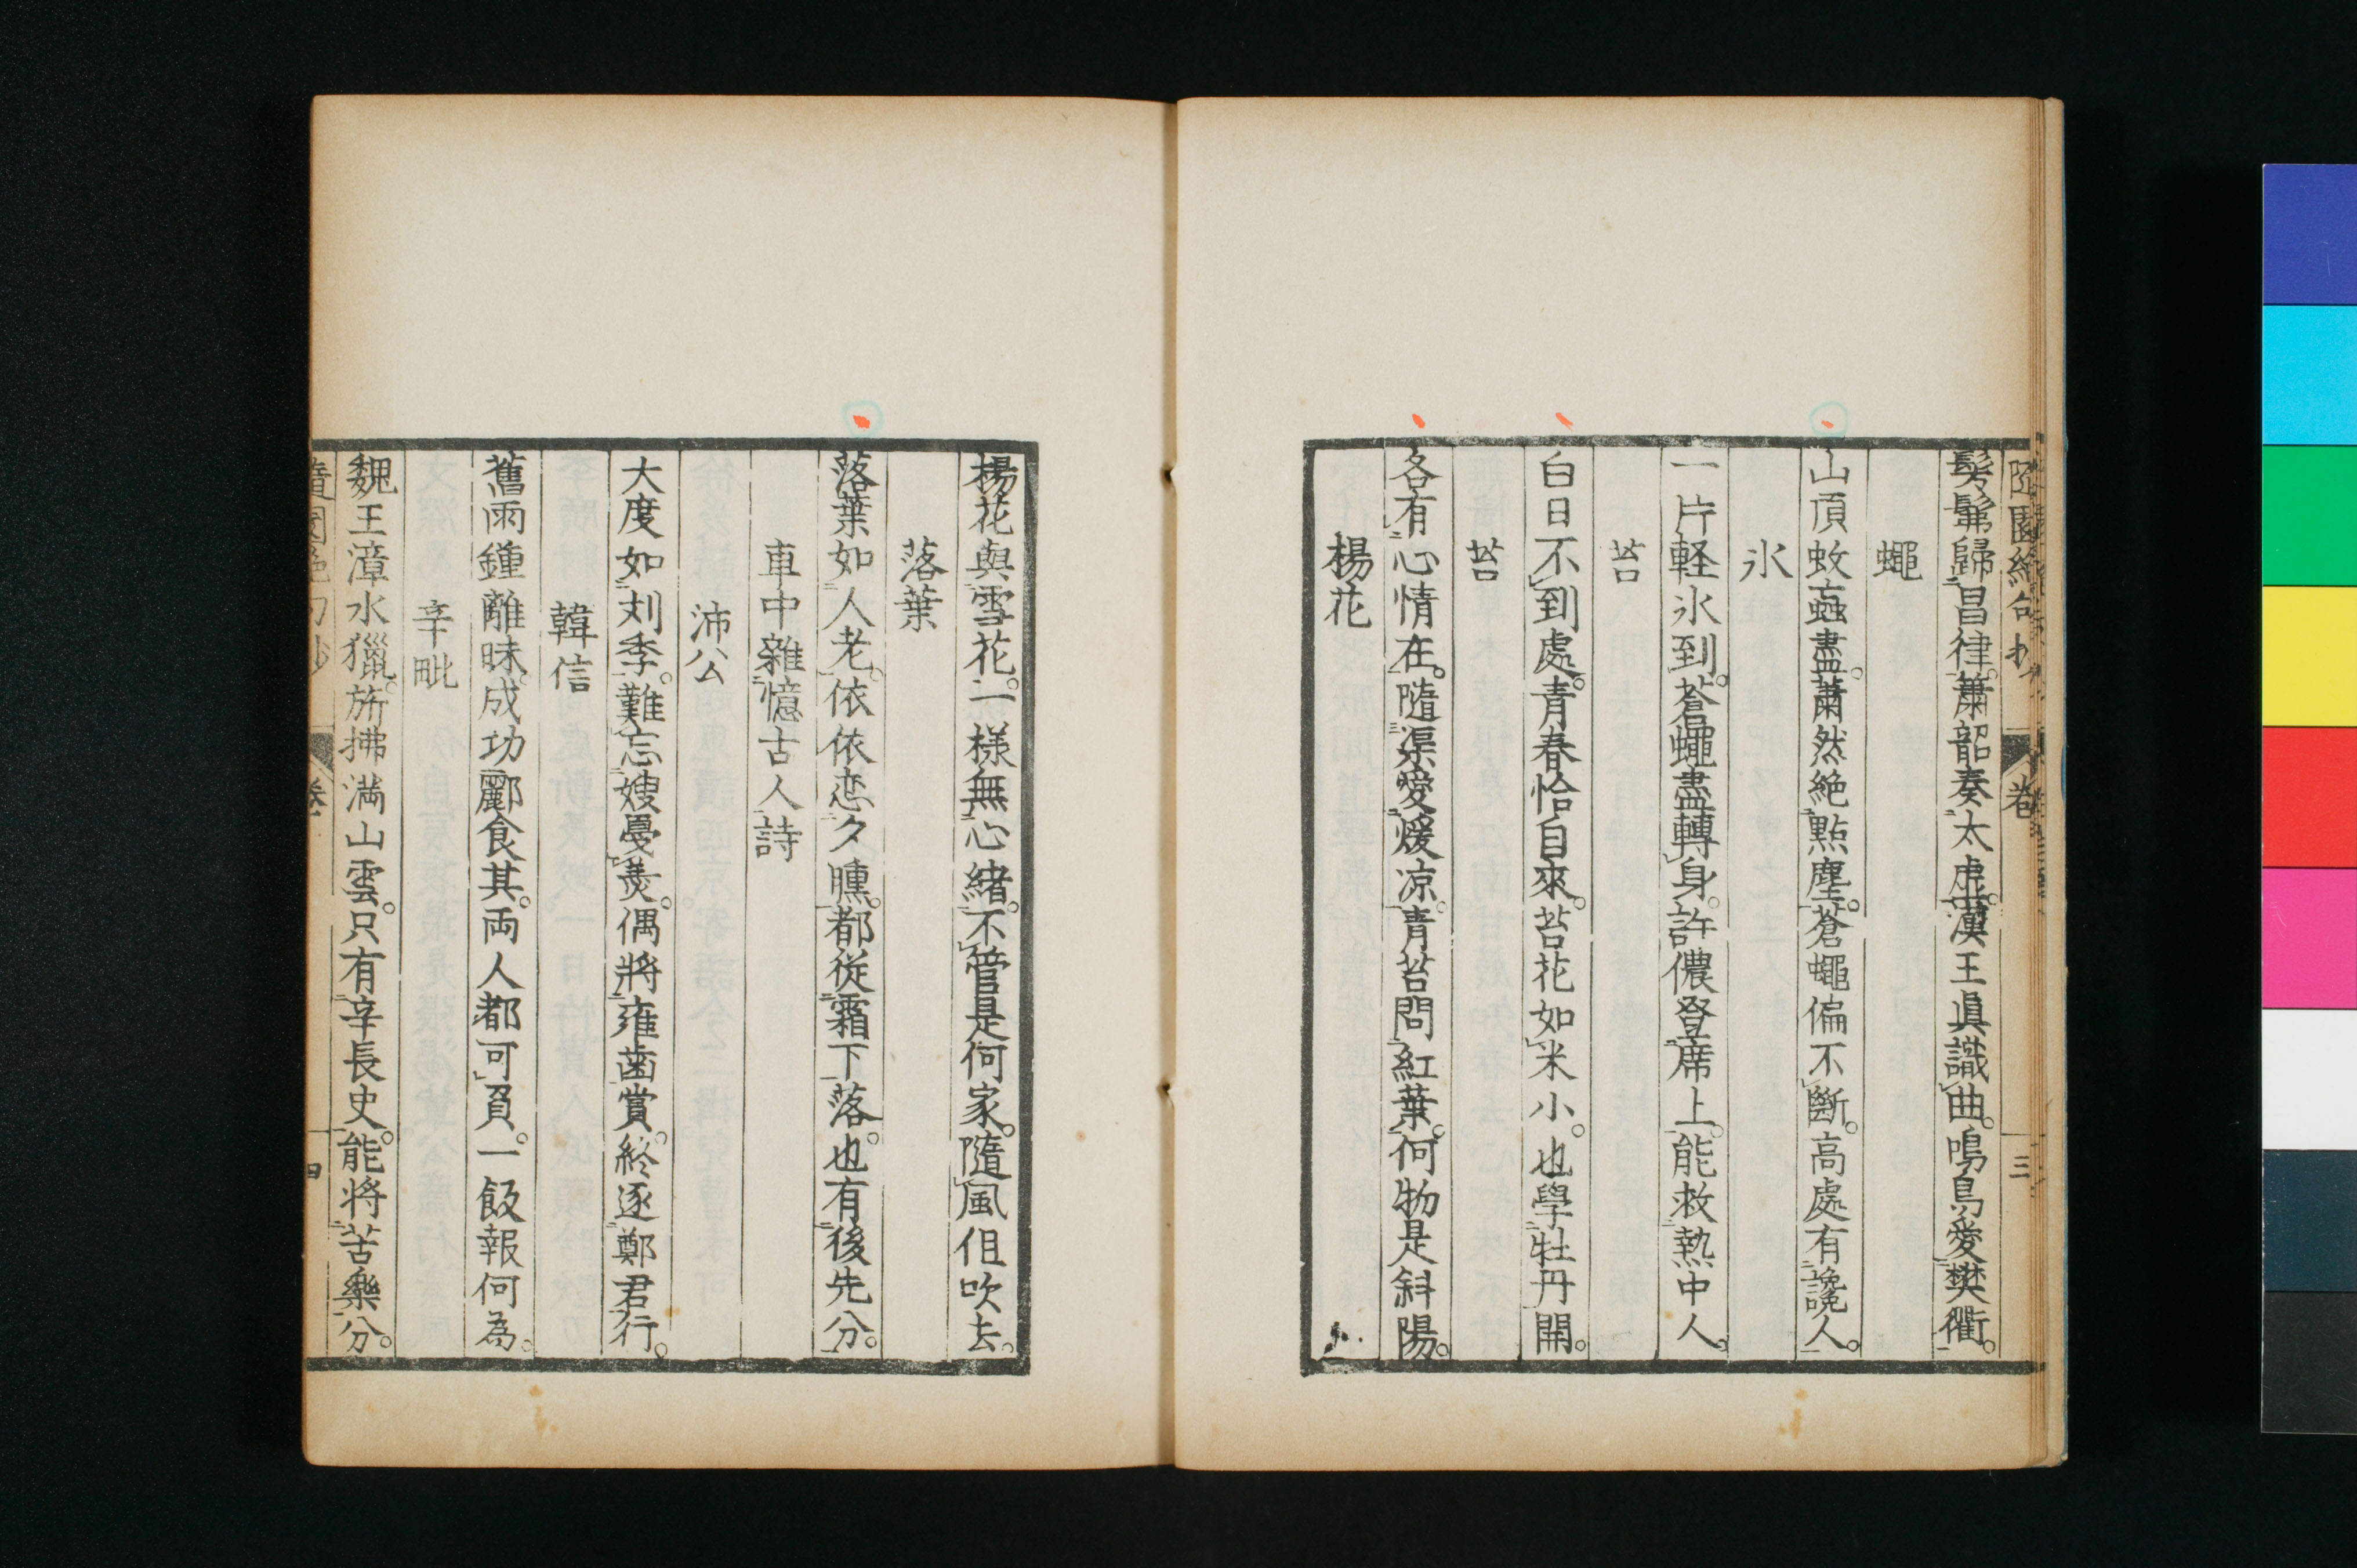 隨園絶句抄 卷 三
髣髴歸昌律。簫韶奏太虛。漢王眞識曲。鳴鳥愛樊衢。
蠅
山頂蚊蝱盡。蕭然絶點塵。蒼蠅偏不斷。高處有讒人。
氷
一片軽氷到。蒼蠅盡轉身。許儂登席上。能救熱中人。
苔
白日不到處。青春恰自來。苔花如米小。也學牡丹開。
苔
各有心情在。隨渠愛煖凉。青苔問紅葉。何物是斜陽。
楊花
楊花與雪花。一様無心緒。不管是何家。隨風但吹去。
落葉
落葉如人老。依依恋夕曛。都従霜下落。也有後先分。
車中雜憶古人詩
沛公
大度如刘季。難忘嫂戛羹。偶將雍歯賞。終逐鄭君行。
韓信
舊雨鍾離昧。成功酈食其。両人都可負。一飯報何為。
辛毗
魏王漳水獵。旂拂満山雲。只有辛長史。能将苦樂分。
隨園絶句抄 卷 四